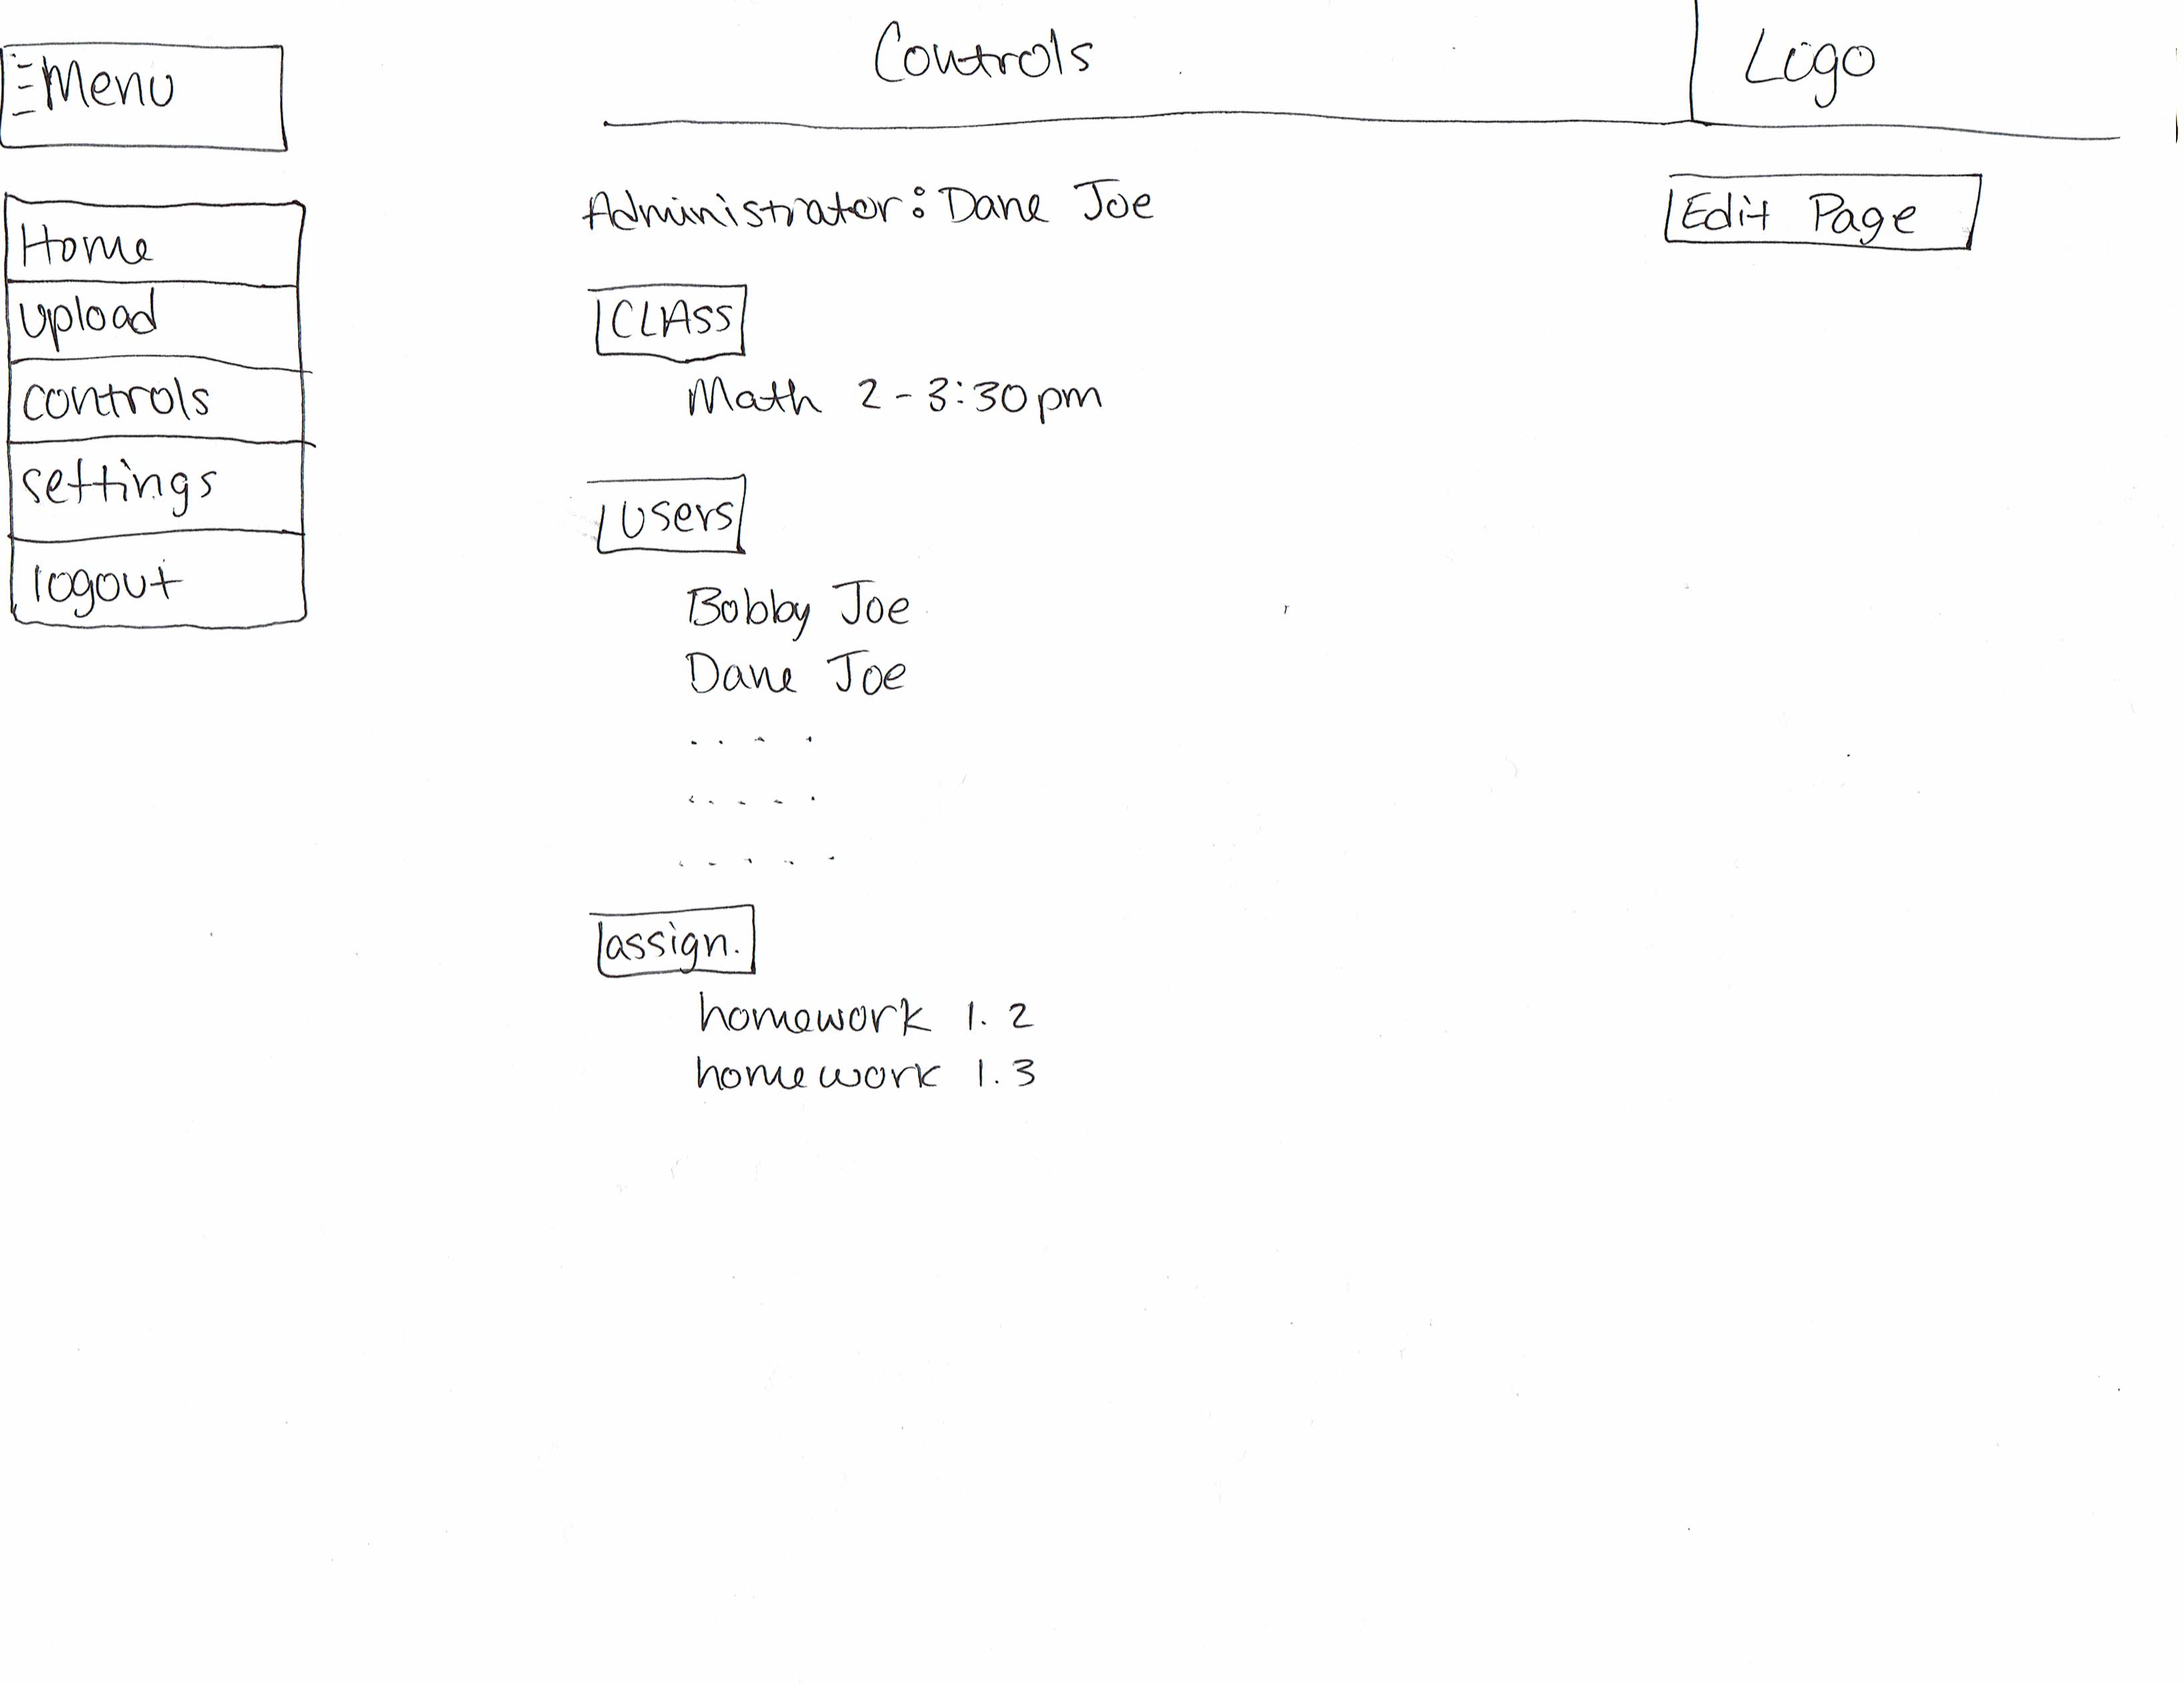 Menu
Controls
Logo
Home
upload
controls
settings
logout
Administrator: Dane Joe
Edit Page
CLASS
Math 2-3:30pm
Users
Bobby Joe
Dane Joe
. . . .
. . . . .
. . . . .
assign.
homework 1.2
homework 1.3